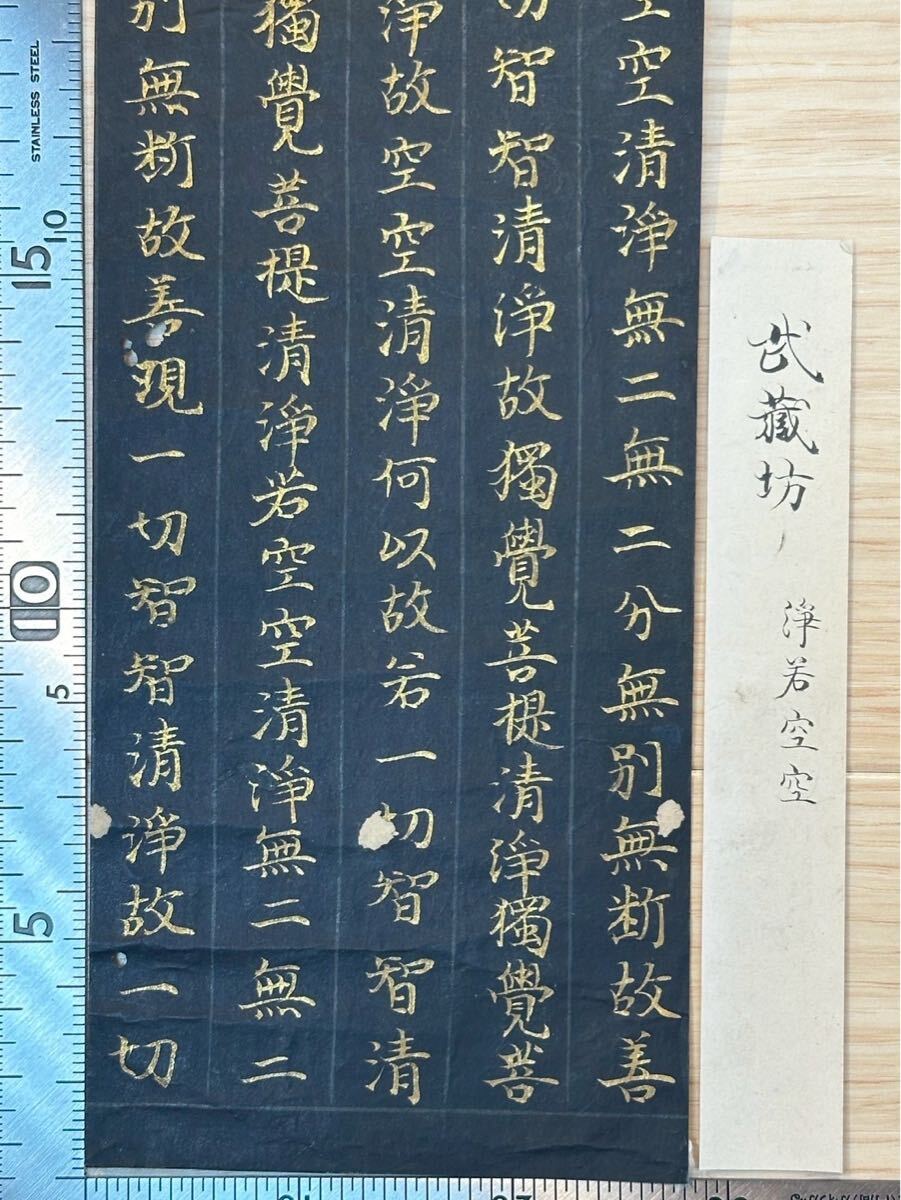 空清淨無二無二分無別無断故善
智智清淨故獨覺菩提清淨獨覺菩
淨故空空清淨何以故若一切智智清
獨覺菩提清淨若空空清淨無二無二
別無断故善現一切智智清淨故一切
武蔵坊
淨若空空
STAINLESS STEEL
15
10
10
5
5